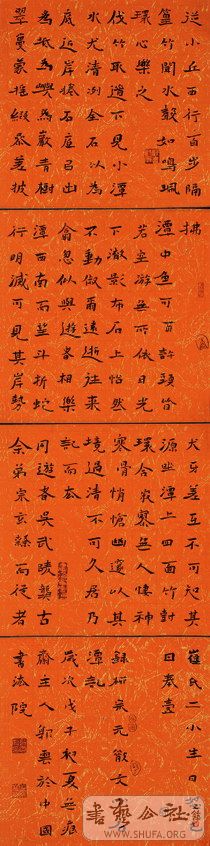 從小丘西行百步隔
篁竹聞水聲如鳴珮
環心樂之
伐竹取道下見小潭
水尤清冽全石以為
底近岸捲石底以出
為坻為嶼為青樹
翠蔓蒙搖綴參差披
拂
潭中魚可百許頭皆
若空游無所依日光
下澈影布石上怡然
不動俶爾遠逝往來
翕忽似與遊者相樂
潭西南而望斗折蛇
行明滅可見其岸勢
犬牙差互不可知其
源坐潭上四面竹樹
環合寂寥無人悽神
寒骨悄愴幽邃以其
境過清不可久居乃
記而去
同遊者吳武陵龔古
余弟宗玄隸而從者
崔氏二小生曰
曰奉壹
錄柳宗元散文
潭記
歲次戊子初夏无痕
齋主人鄒雲於中國
書法院
書藝公社
WWW.SHUFA.ORG